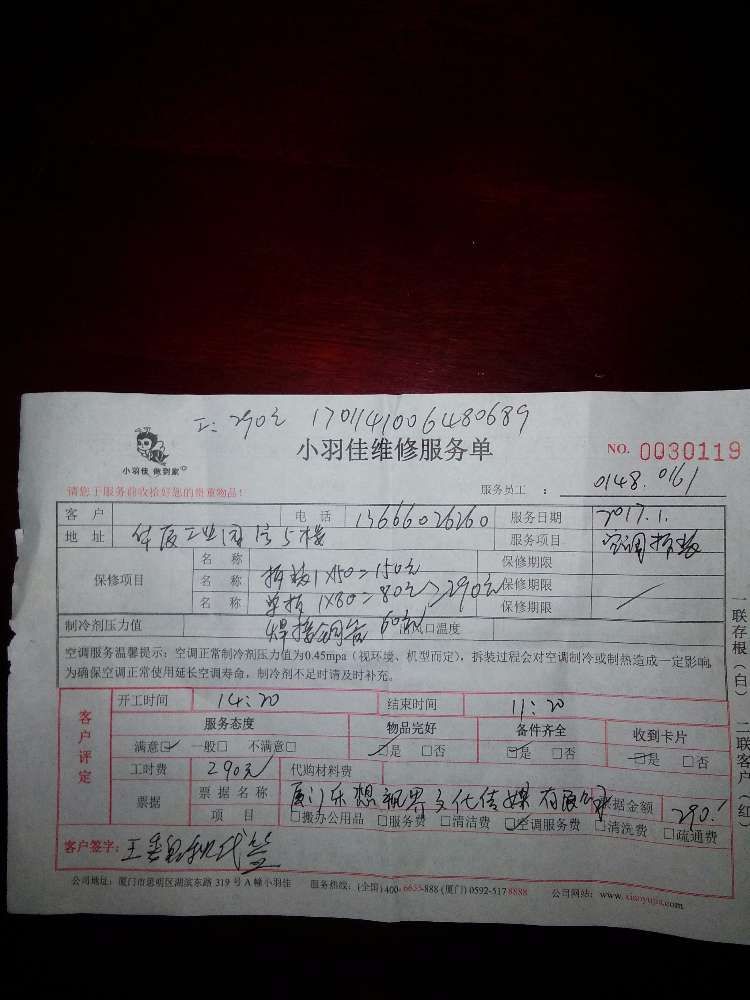 工: 290元 17011410064 80689
小羽佳 做到家
小羽佳维修服务单
NO. 0030119
请您于服务前收拾好您的贵重物品!
服务员工 : 0148. 0161
客 户 电 话 13666026260 服务日期 2017.1.
地 址 华辰工业园 5楼 服务项目 空调拆装
保修项目 名 称 拆装1×150=150元 保修期限
名 称 单拆 1×80=80元 290元 保修期限
名 称 焊接铜管 60元 保修期限
制冷剂压力值 出风口温度
空调服务温馨提示: 空调正常制冷剂压力值为0.45mpa (视环境、机型而定), 拆装过程会对空调制冷或制热造成一定影响,
为确保空调正常使用延长空调寿命, 制冷剂不足时请及时补充。
客户评定
开工时间 14:20 结束时间 11:20
服务态度 物品完好 备件齐全 收到卡片
满意□ 一般□ 不满意□ □是 □否 □是 □否 □是 □否
工时费 290元 代购材料费
票据 票 据 名 称 厦门乐想视界文化传媒有限公司 票据金额 290.
项 目 □搬办公用品 □服务费 □清洁费 □空调服务费 □清洗费 □疏通费
客户签字:
公司地址: 厦门市思明区湖滨东路 319 号 A 幢小羽佳 服务热线: (全国) 400-6633-888 (厦门) 0592-517 8888 公司网站: www.xiaoyujia.com
一联存根(白) 二联客户(红)